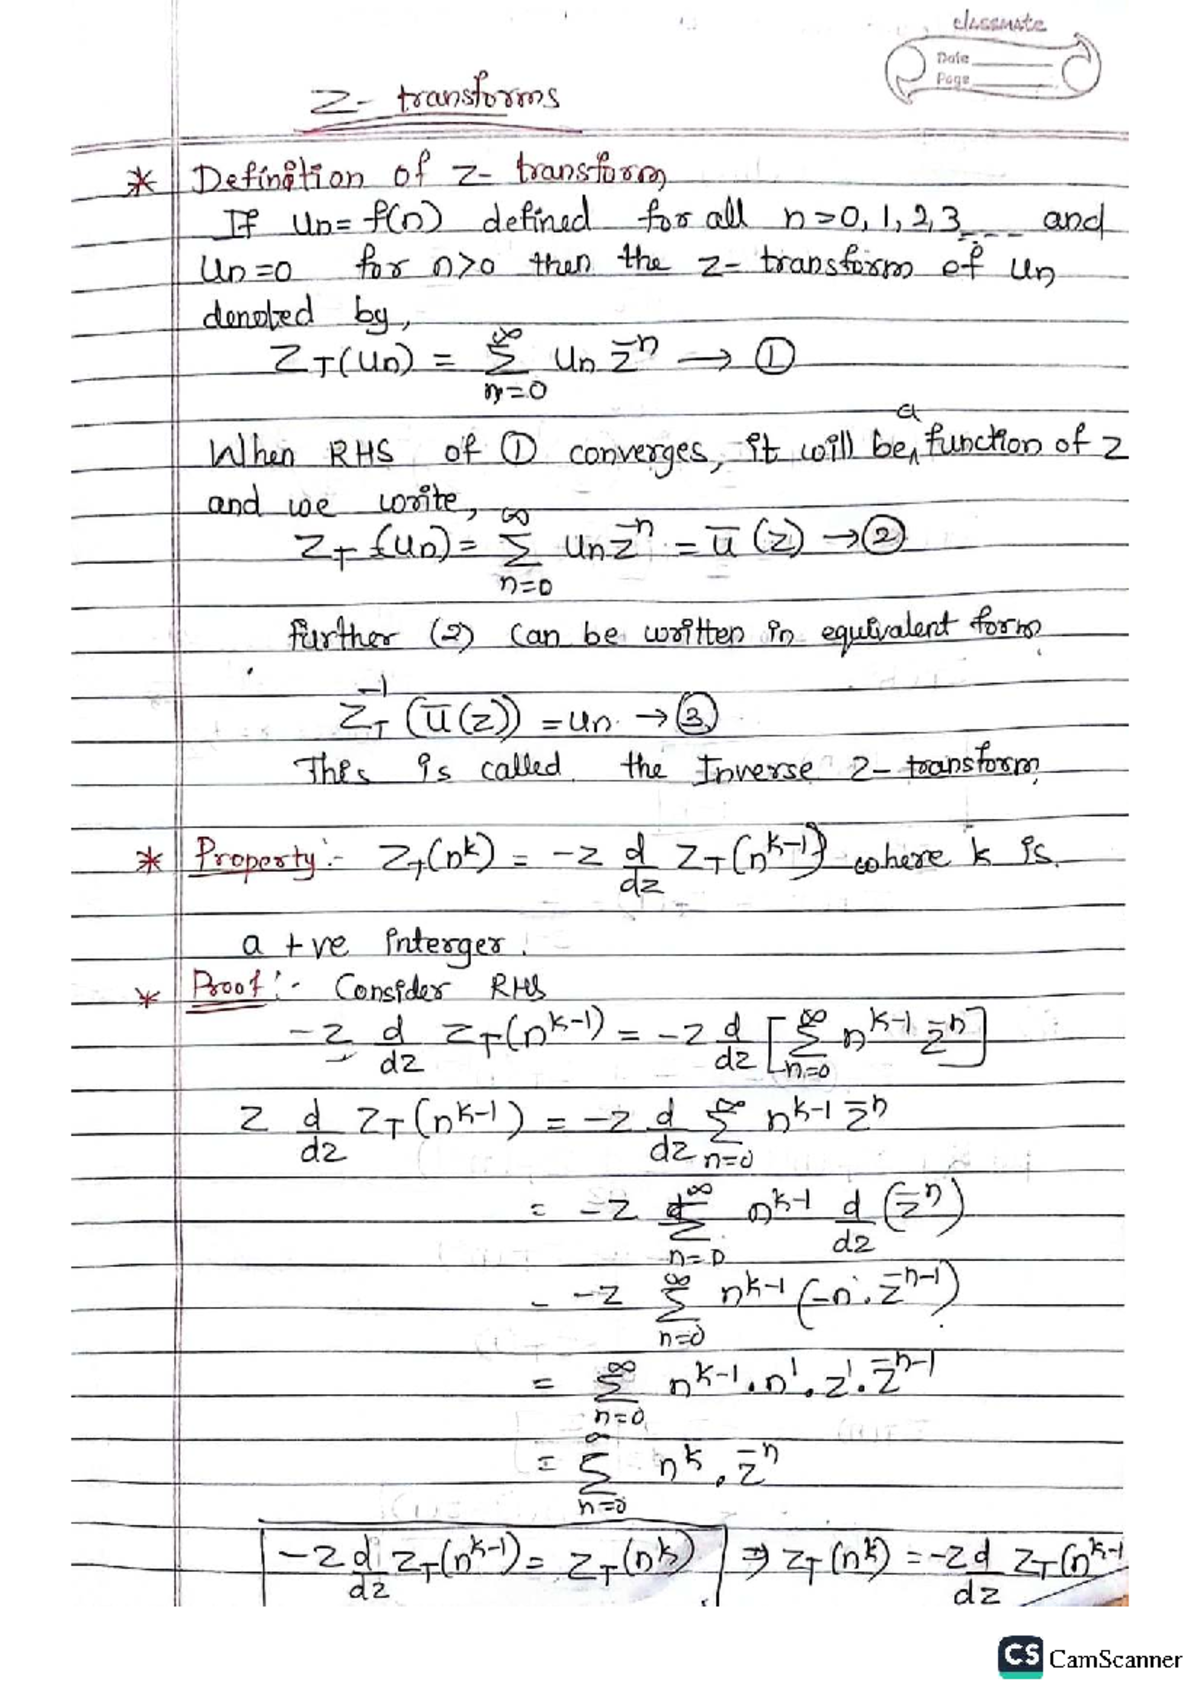 classmate
Date
Page
Z- transforms
* Definition of z- transform
If un = f(n) defined for all n=0, 1, 2, 3, --- and
un=0 for n>0 then the z- transform of un
denoted by,
Z_T(un) = ∑_{n=0}^{∞} un z^{-n} → ①
When RHS of ① converges, it will be a function of z
and we write,
Z_T(un) = ∑_{n=0}^{∞} un z^{-n} = ū(z) → ②
further (2) can be written in equivalent form
Z_T^{-1}(ū(z)) = un. → ③
This is called the Inverse z- transform
* Property:- Z_T(n^k) = -z d/dz Z_T(n^{k-1}) where k is
a +ve interger.
* Proof:- Consider RHS
-z d/dz Z_T(n^{k-1}) = -z d/dz [∑_{n=0}^{∞} n^{k-1} z^{-n}]
z d/dz Z_T(n^{k-1}) = -z d/dz ∑_{n=0}^{∞} n^{k-1} z^{-n}
= -z ∑_{n=0}^{∞} n^{k-1} d/dz (z^{-n})
= -z ∑_{n=0}^{∞} n^{k-1} (-n · z^{-n-1})
= ∑_{n=0}^{∞} n^{k-1} · n^1 · z^1 · z^{-n-1}
= ∑_{n=0}^{∞} n^k · z^{-n}
-z d/dz Z_T(n^{k-1}) = Z_T(n^k) ⇒ Z_T(n^k) = -z d/dz Z_T(n^{k-1}
CS CamScanner